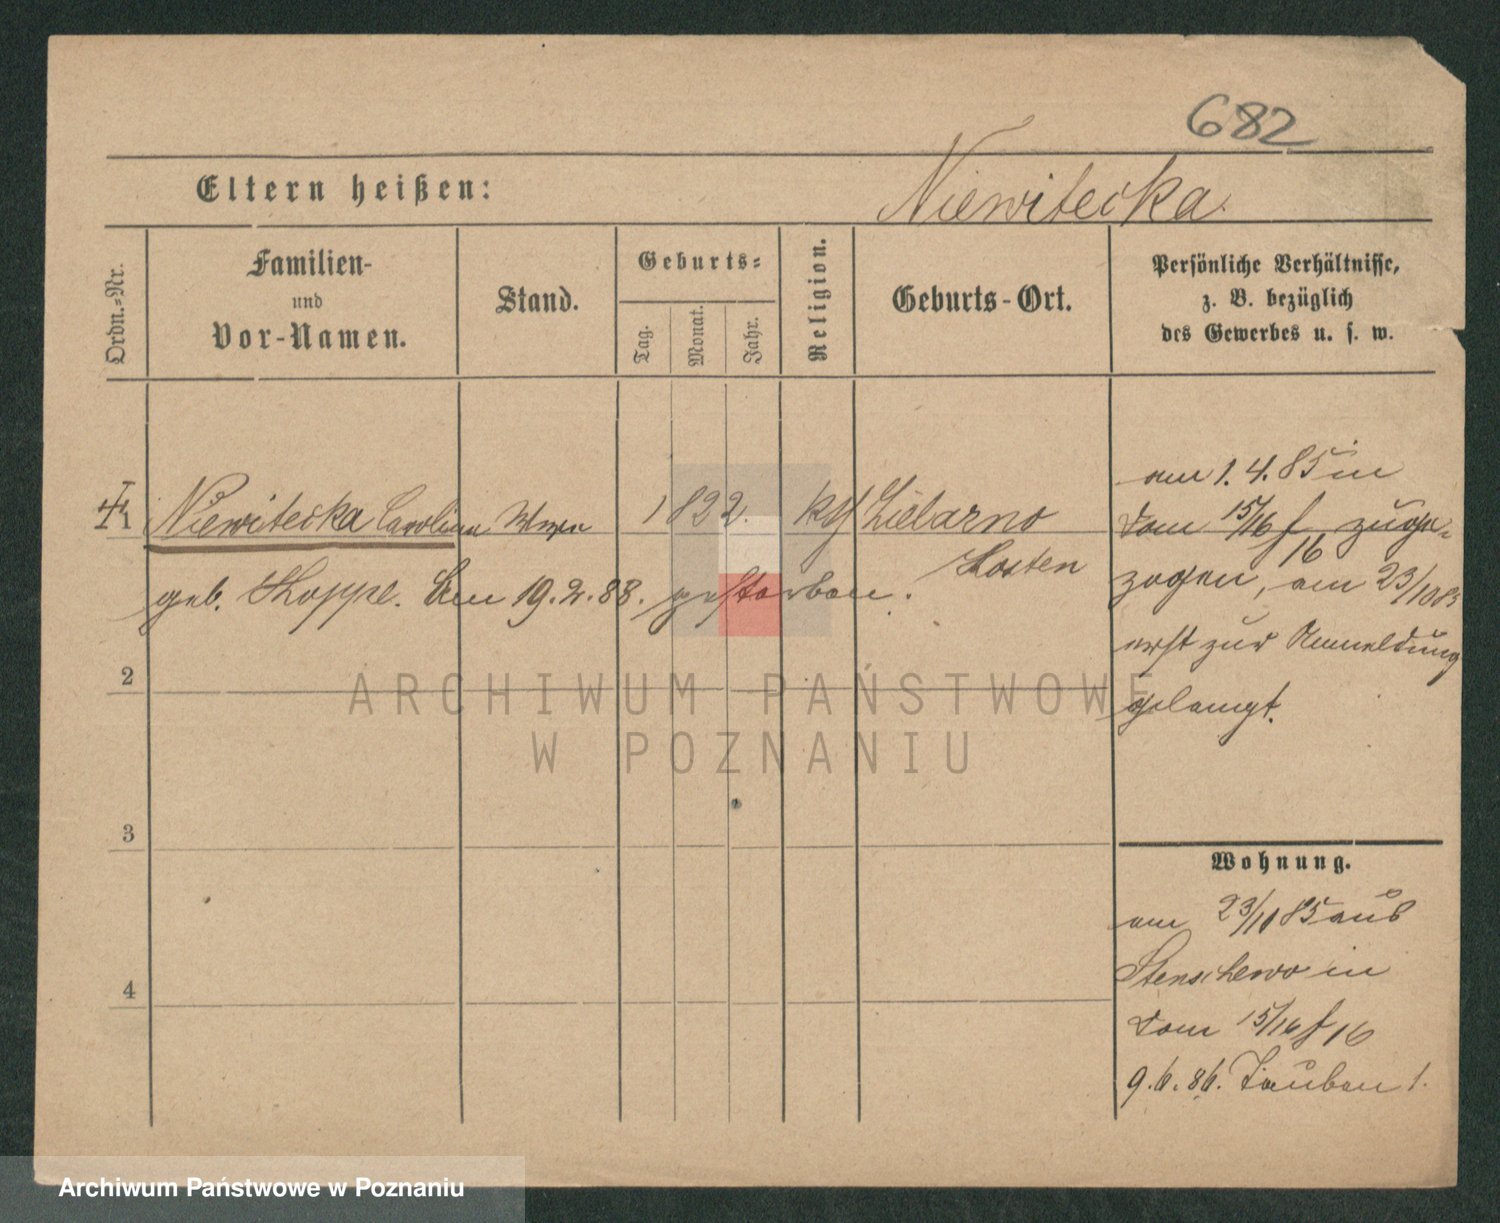 682
Eltern heißen:
Niewitecka.
Ordn.-Nr.
Familien-
und
Vor-Namen.
Stand.
Geburts-
Tag.
Monat.
Jahr.
Religion.
Geburts-Ort.
Persönliche Verhältnisse,
z. B. bezüglich
des Gewerbes u. s. w.
1
Niewitecka Caroline
1822.
Kosten
geb. Hoppe. Am 19.2.88. gestorben.
am 1.4.85 in
Dom 15/16 f zuge-
16
zogen, am 23/10 85
erst zur Anmeldung
gelangt.
2
3
4
Wohnung.
am 23/10 85 aus
Stenschewo in
Dom 15/16 f 16
9.6.86. Tauben 1.
ARCHIWUM PAŃSTWOWE
W POZNANIU
Archiwum Państwowe w Poznaniu